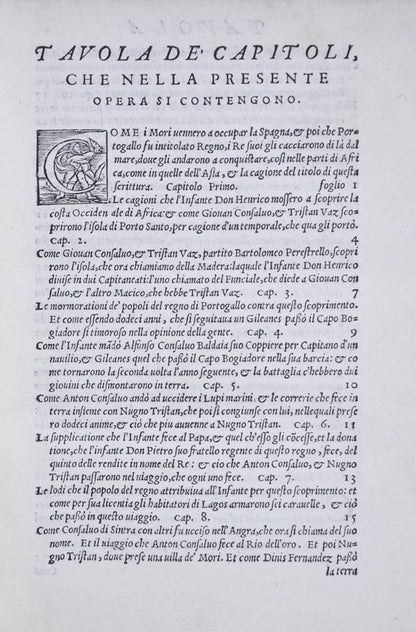 TAVOLA DE' CAPITOLI,
CHE NELLA PRESENTE
OPERA SI CONTENGONO.
COME i Mori uennero a occupar la Spagna,& poi che Por-
togallo fu intitolato Regno, i Re suoi gli cacciarono di là dal
mare, doue gli andarono a conquistare, cosi nelle parti di Afri
ca, come in quelle dell'Asia, & la cagione del titolo di questa
scrittura. Capitolo Primo. foglio 1
Le cagioni che l'Infante Don Henrico mossero a scoprire la
costa Occiden ale di Africa: & come Giouan Consaluo, & Tristan Vaz sco-
prirono l'isola di Porto Santo, per cagione d'un temporale, che qua gli portò.
Cap. 2. 4
Come Giouan Consaluo, & Tristan Vaz, partito Bartolomeo Perestrello, scopri
rono l'isola, che ora chiamiamo della Madera: laquale l'Infante Don Henrico
diuise in dui Capitaneati: l'uno chiamato del Funciale, che diede a Giouan Con
saluo, & l'altro Macico, che hebbe Tristan Vaz. Cap. 3. 7
Le mormorationi de' popoli del regno di Portogallo contra questo scoprimento.
Et come essendo dodeci anni, che si seguitaua un Gileanes passò il Capo Bo-
giadore si timoroso nella opinione della gente. Cap. 4. 9
Come l'Infante mãdò Alfonso Consaluo Baldaia suo Coppiere per Capitano d'un
nauilio, & Gileanes quel che passò il Capo Bogiadore nella sua barcia: & co
me tornarono la seconda uolta l'anno seguente, & la battaglia c'hebbero dui
giouini che dismontarono in terra. Cap. 5. 10
Come Anton Consaluo andò ad uccidere i Lupi marini. & le correrie che fece in
terra insieme con Nugno Tristan, che poi si congiunse con lui, nellequali prese
ro dodeci anime, & ciò che piu auuenne a Nugno Tristan. Cap. 6. 11
La supplicatione che l'Infante fece al Papa, & quel ch'esso gli cõcesse, et la dona
tione, che l'infante Don Pietro suo fratello regente di questo regno, fece, del
quinto delle rendite in nome del Re: & ciò che Anton Consaluo, & Nugno
Tristan passarono nel uiaggio, che ogni uno fece. Cap. 7. 13
Le lodi che il popolo del regno attribuiua all'Infante per questo scoprimento: et
come per sua licentia gli habitatori di Lagos armarono sei carauelle, & ciò
che passò in questo uiaggio. Cap. 8. 15
Come Consaluo di Sintra con altri fu ucciso nell'Angra, che ora si chiama del suo
nome. Et il uiaggio che Anton Consaluo fece al Rio dell'oro. Et poi Nu-
gno Tristan, doue prese una uilla de' Mori. Et come Dinis Fernandez passò
la terra